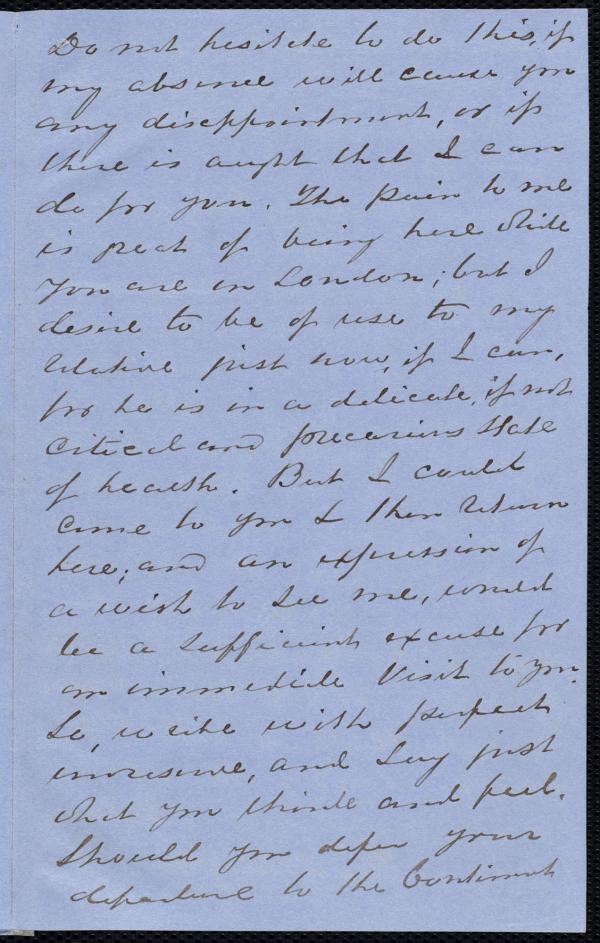 Do not hesitate to do this, if
my absence will cause you
any disappointment, or if
there is aught that I can
do for you. The pain to me
is great of being here while
you are in London; but I
desire to be of use to my
relative just now, if I can,
for he is in a delicate, if not
critical and precarious state
of health. But I could
come to you & then return
here; and an expression of
a wish to see me, would
be a sufficient excuse for
an immediate visit to you.
So, write with perfect
unreserve, and say just
what you think and feel.
Should you defer your
departure to the Continent